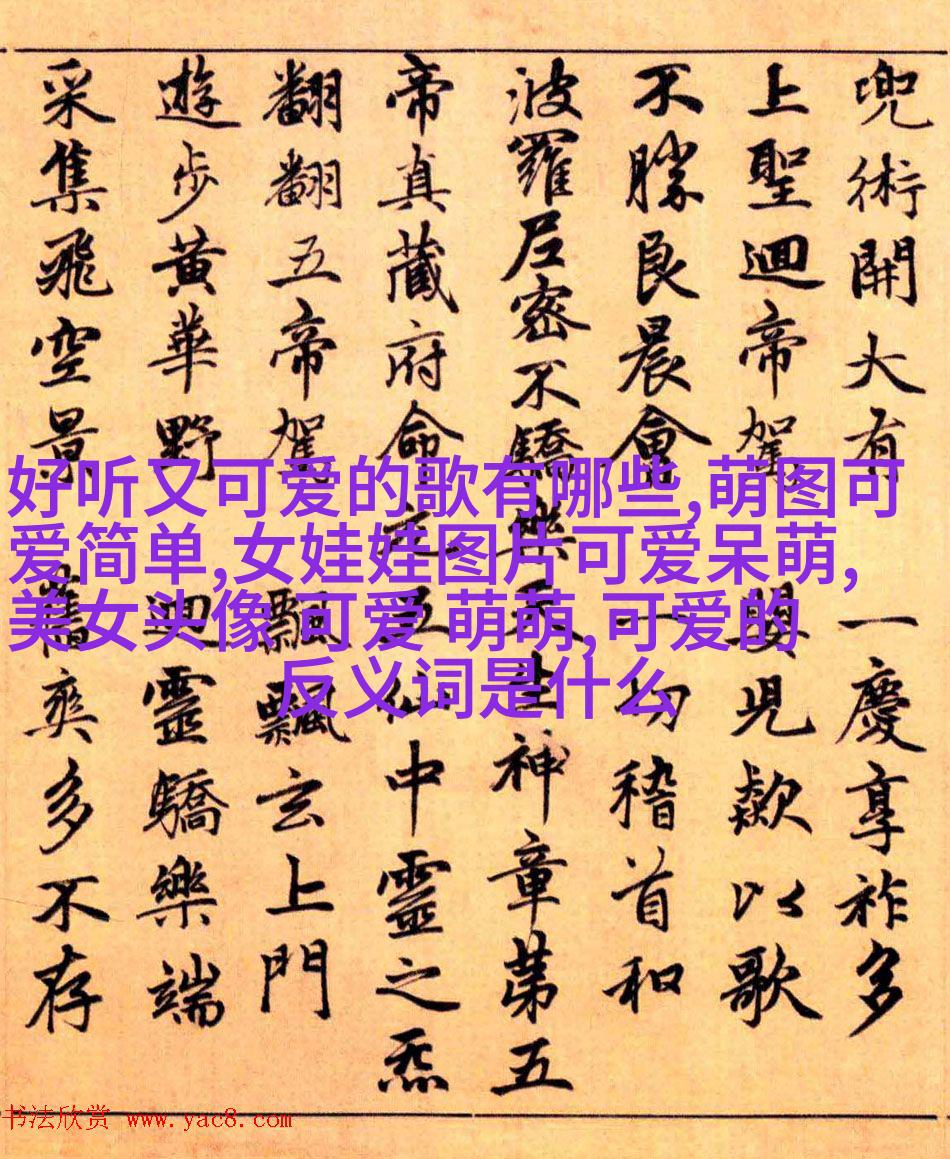 好听又可爱的歌有哪些,萌图可
爱简单,女娃娃图片可爱呆萌,
美女头像 可爱 萌萌,可爱的
反义词是什么
兜術開大有 一慶享祚多
上聖迴帝駕 嬰兒歘以歌
不勝良晨會 一切稽首和
波羅尼密不驕樂天生神章第五
帝真藏府命仙中靈之炁
翻翻五帝駕 飄飄玄上門
遊步黃華野 迴靈驕樂端
采集飛空景 舊爽多不存
书法欣赏 www.yac8.com